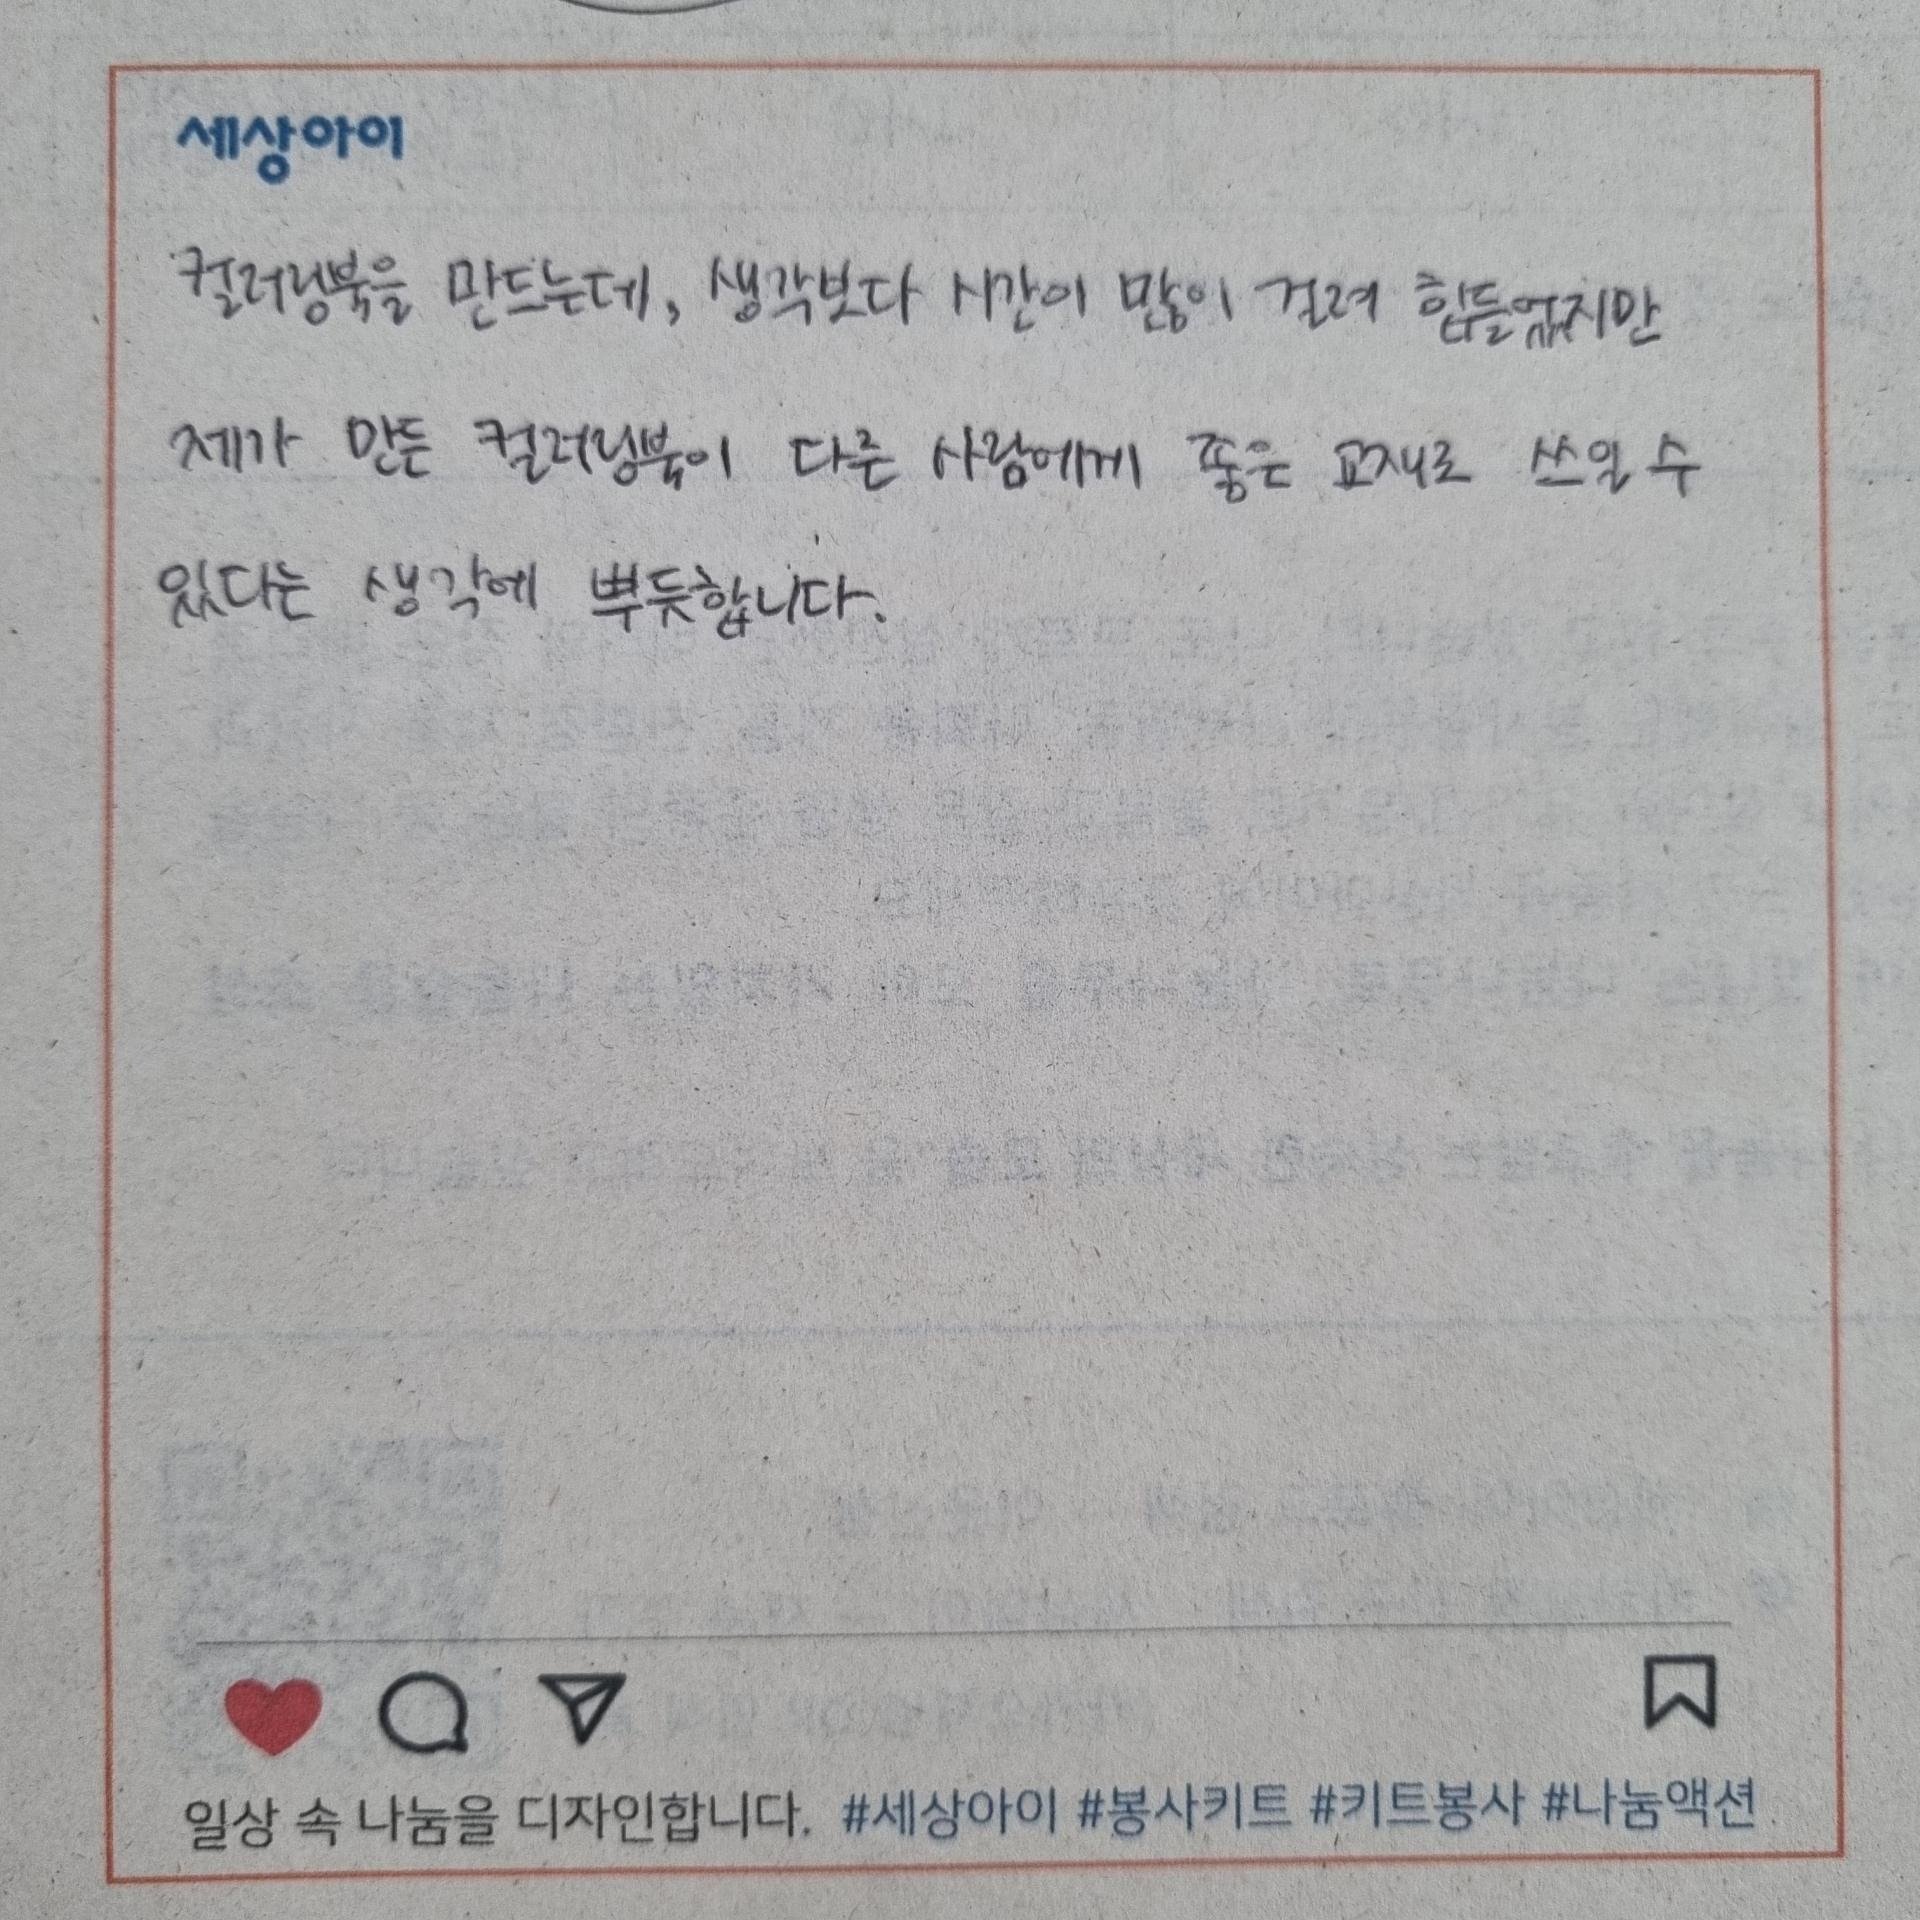 세상아이
컬러링북을 만드는데, 생각보다 시간이 많이 걸려 힘들었지만
제가 만든 컬러링북이 다른 사람에게 좋은 교재로 쓰일 수
있다는 생각에 뿌듯합니다.
일상 속 나눔을 디자인합니다. #세상아이 #봉사키트 #키트봉사 #나눔액션